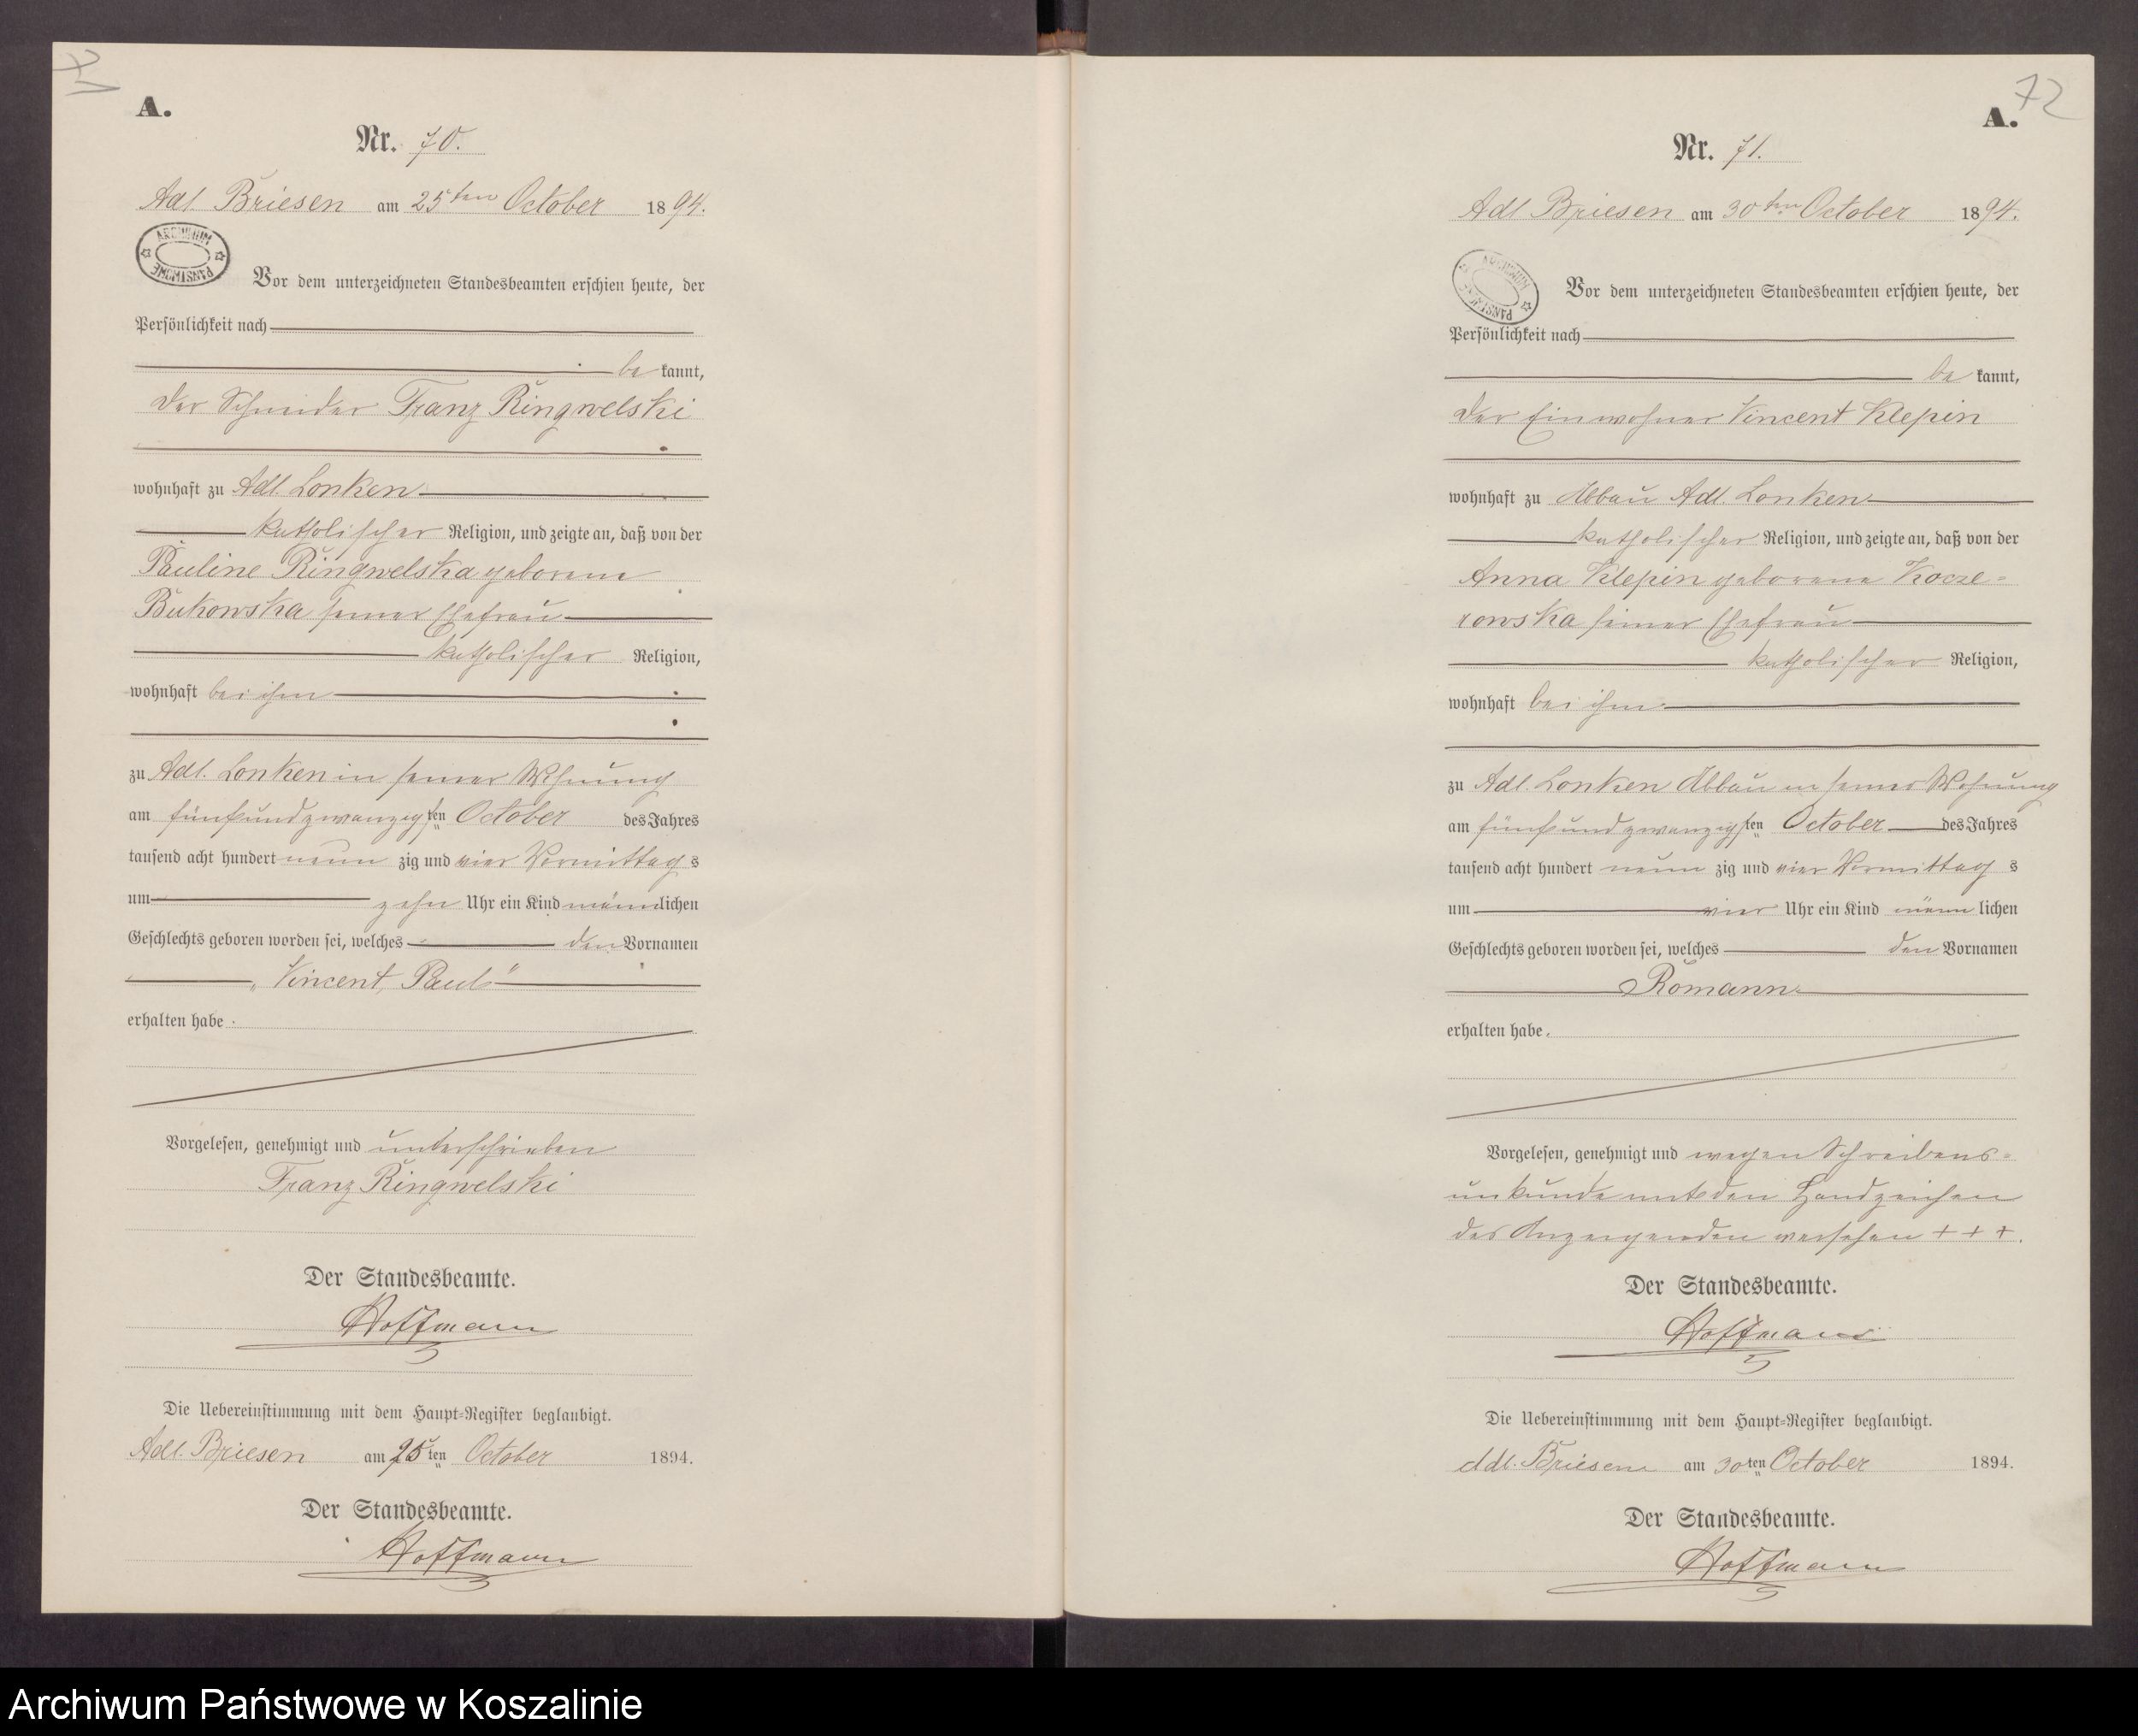 71
A.
Nr. 70.
Adl. Briesen am 25ten October 1894.
ARCHIWUM PAŃSTWOWE
Vor dem unterzeichneten Standesbeamten erschien heute, der
Persönlichkeit nach
be kannt,
der Schneider Franz Ringwelski
wohnhaft zu Adl. Lonken
katholischer Religion, und zeigte an, daß von der
Pauline Ringwelska geborene
Bukowska seiner Ehefrau
katholischer Religion,
wohnhaft bei ihm
zu Adl. Lonken in seiner Wohnung
am fünfundzwanzigsten October des Jahres
tausend acht hundert neun zig und vier Vormittag s
um zehn Uhr ein Kind männlichen
Geschlechts geboren worden sei, welches den Vornamen
„Vincent, Paul“
erhalten habe.
Vorgelesen, genehmigt und unterschrieben
Franz Ringwelski
Der Standesbeamte.
Hoffmann
Die Uebereinstimmung mit dem Haupt-Register beglaubigt.
Adl. Briesen am 25ten October 1894.
Der Standesbeamte.
Hoffmann
72
A.
Nr. 71.
Adl. Briesen am 30ten October 1894.
ARCHIWUM PAŃSTWOWE
Vor dem unterzeichneten Standesbeamten erschien heute, der
Persönlichkeit nach
be kannt,
der Einwohner Vincent Klepin
wohnhaft zu Abbau Adl. Lonken
katholischer Religion, und zeigte an, daß von der
Anna Klepin geborene Kocze-
rowska seiner Ehefrau
katholischer Religion,
wohnhaft bei ihm
zu Adl. Lonken Abbau in seiner Wohnung
am fünfundzwanzigsten October des Jahres
tausend acht hundert neun zig und vier Vormittag s
um vier Uhr ein Kind männ lichen
Geschlechts geboren worden sei, welches den Vornamen
Romann
erhalten habe.
Vorgelesen, genehmigt und wegen Schreibens-
unkunde mit den Handzeichen
des Anzeigenden versehen + + +.
Der Standesbeamte.
Hoffmann
Die Uebereinstimmung mit dem Haupt-Register beglaubigt.
Adl. Briesen am 30ten October 1894.
Der Standesbeamte.
Hoffmann
Archiwum Państwowe w Koszalinie